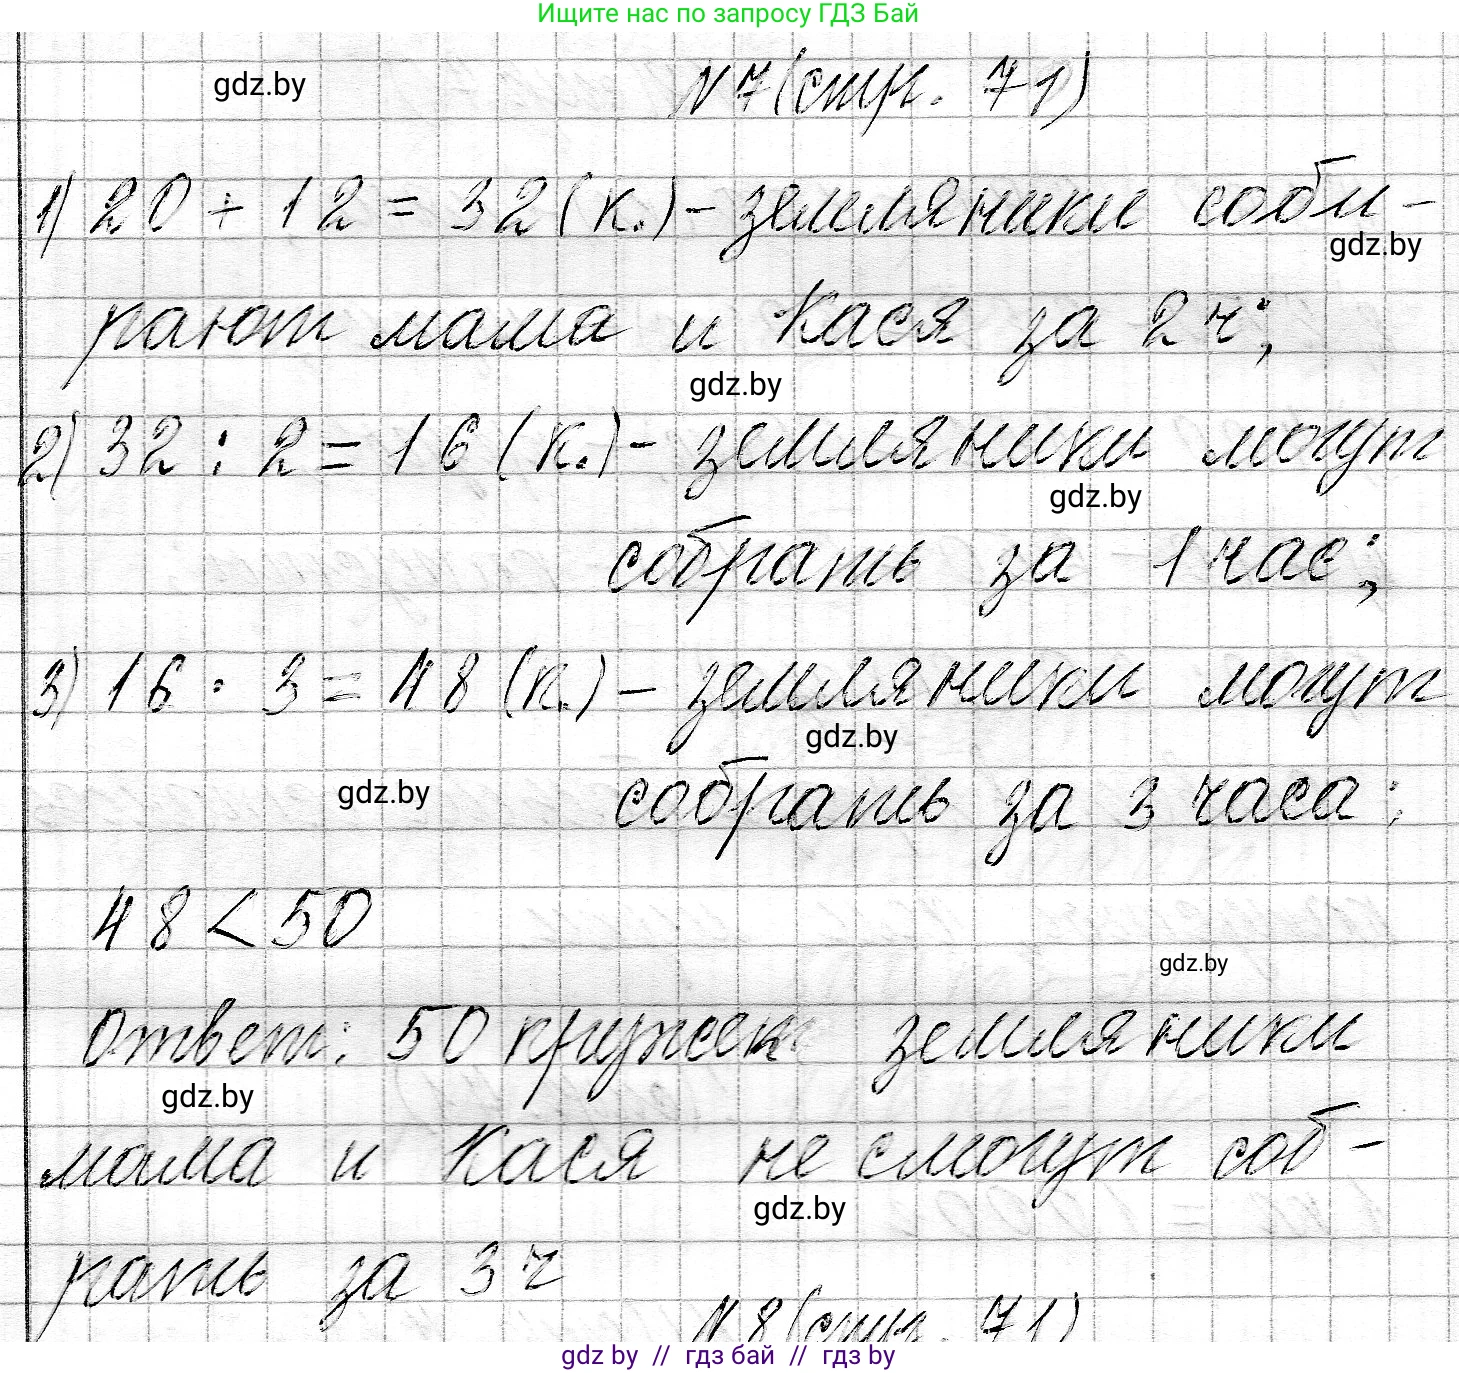 Ищите нас по запросу ГДЗ Бай
gdz.by
N7(стр. 71)
1) 20 + 12 = 32 (к.) - земляники соби-
gdz.by
рают мама и Кася за 2 ч;
gdz.by
2) 32 : 2 = 16 (к.) - земляники могут
gdz.by
собрать за 1 час;
3) 16 · 3 = 48 (к.) - земляники могут
gdz.by
gdz.by
собрать за 3 часа;
48 < 50
gdz.by
Ответ: 50 кружек земляники
gdz.by
мама и Кася не смогут соб-
gdz.by
рать за 3 ч
N8(стр. 71)
gdz by // гдз бай // гдз by